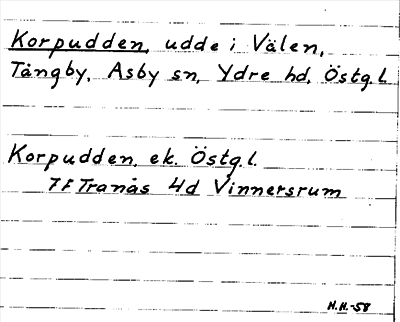 Korpudden, udde i Välen,
Tångby, Asby sn, Ydre hd, Östg.l.
Korpudden, ek. Östg.l.
7F Tranås 4d Vinnersrum
H.H.-58